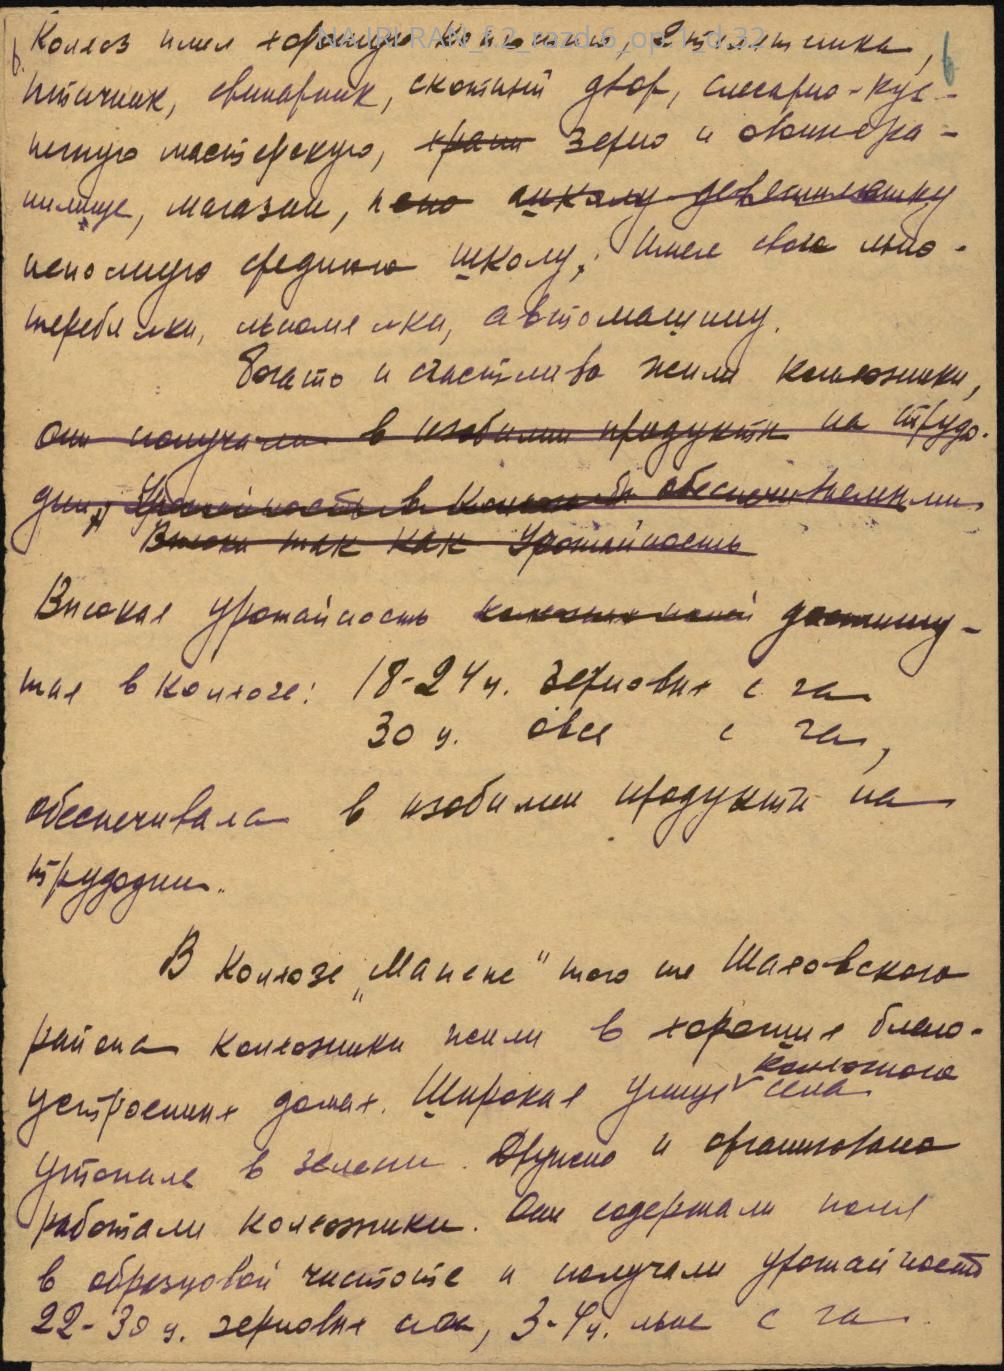 NA IRI RAN_f.2_razd.6_op.1_d.32
6
Колхоз имел хорошую конюшню,
птичник, свинарник, скотный двор, слесарно-куз-
нечную мастерскую, храни зерно и овощехра-
нилище, магазин, школу девятилетку
неполную среднюю школу, имел свои льно-
теребилки, льномялки, автомашину.
Богато и счастливо жили колхозники,
они получали в изобилии продукты на трудо-
дни, урожайность в колхозе обеспечиваемыми
так как урожайность
Высокая урожайность достигну-
тая в колхозе: 18-24 ц. зерновых с га
30 ц. овса с га,
обеспечивала в изобилии продукты на
трудодни.
В колхозе „Манене" того же Шаховского
района колхозники жили в хороших благо-
колхозного
устроенных домах. Широкая улица села
утопала в зелени. Дружно и организовано
работали колхозники. Они содержали поля
в образцовой чистоте и получали урожайность
22-30 ц. зерновых с га, 3-4 ц. льна с га.